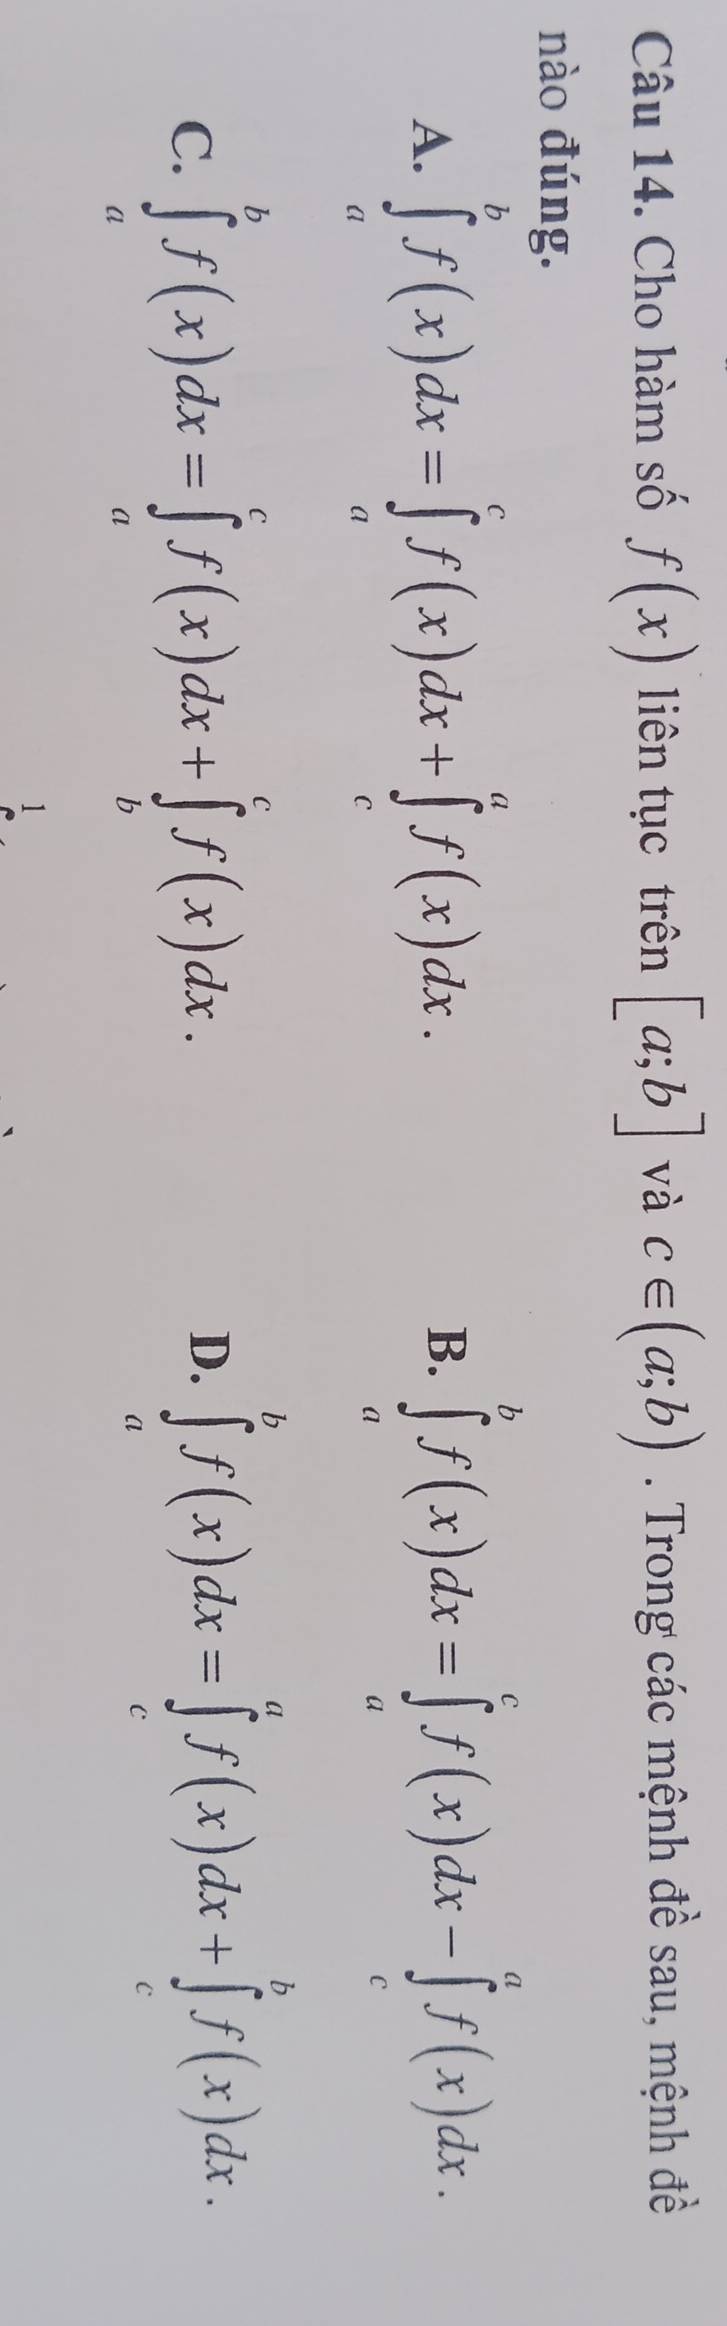 Câu 14. Cho hàm số f(x) liên tục trên [a;b] và c∈(a;b). Trong các mệnh đề sau, mệnh đề
nào đúng.
A. ∫_a^b f(x)dx = ∫_a^c f(x)dx + ∫_c^a f(x)dx. B. ∫_a^b f(x)dx = ∫_a^c f(x)dx − ∫_c^a f(x)dx.
C. ∫_a^b f(x)dx = ∫_a^c f(x)dx + ∫_b^c f(x)dx. D. ∫_a^b f(x)dx = ∫_c^a f(x)dx + ∫_c^b f(x)dx.
1